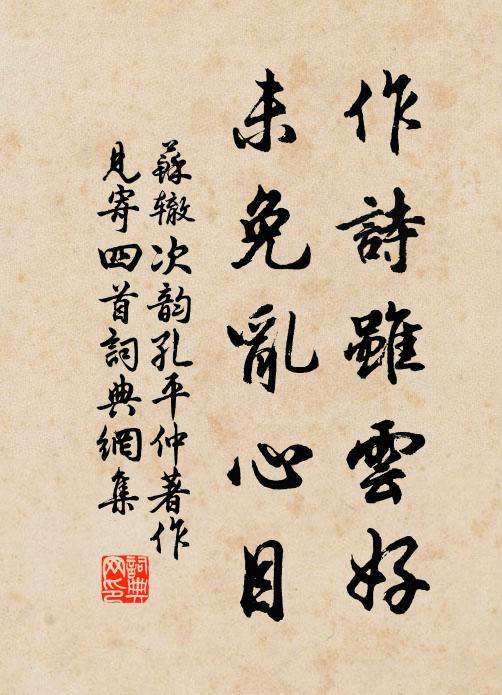 作詩雖雲好
未免亂心目
蘇辙次韵孔平仲著作
見寄四首詞典網集
詞典
网印